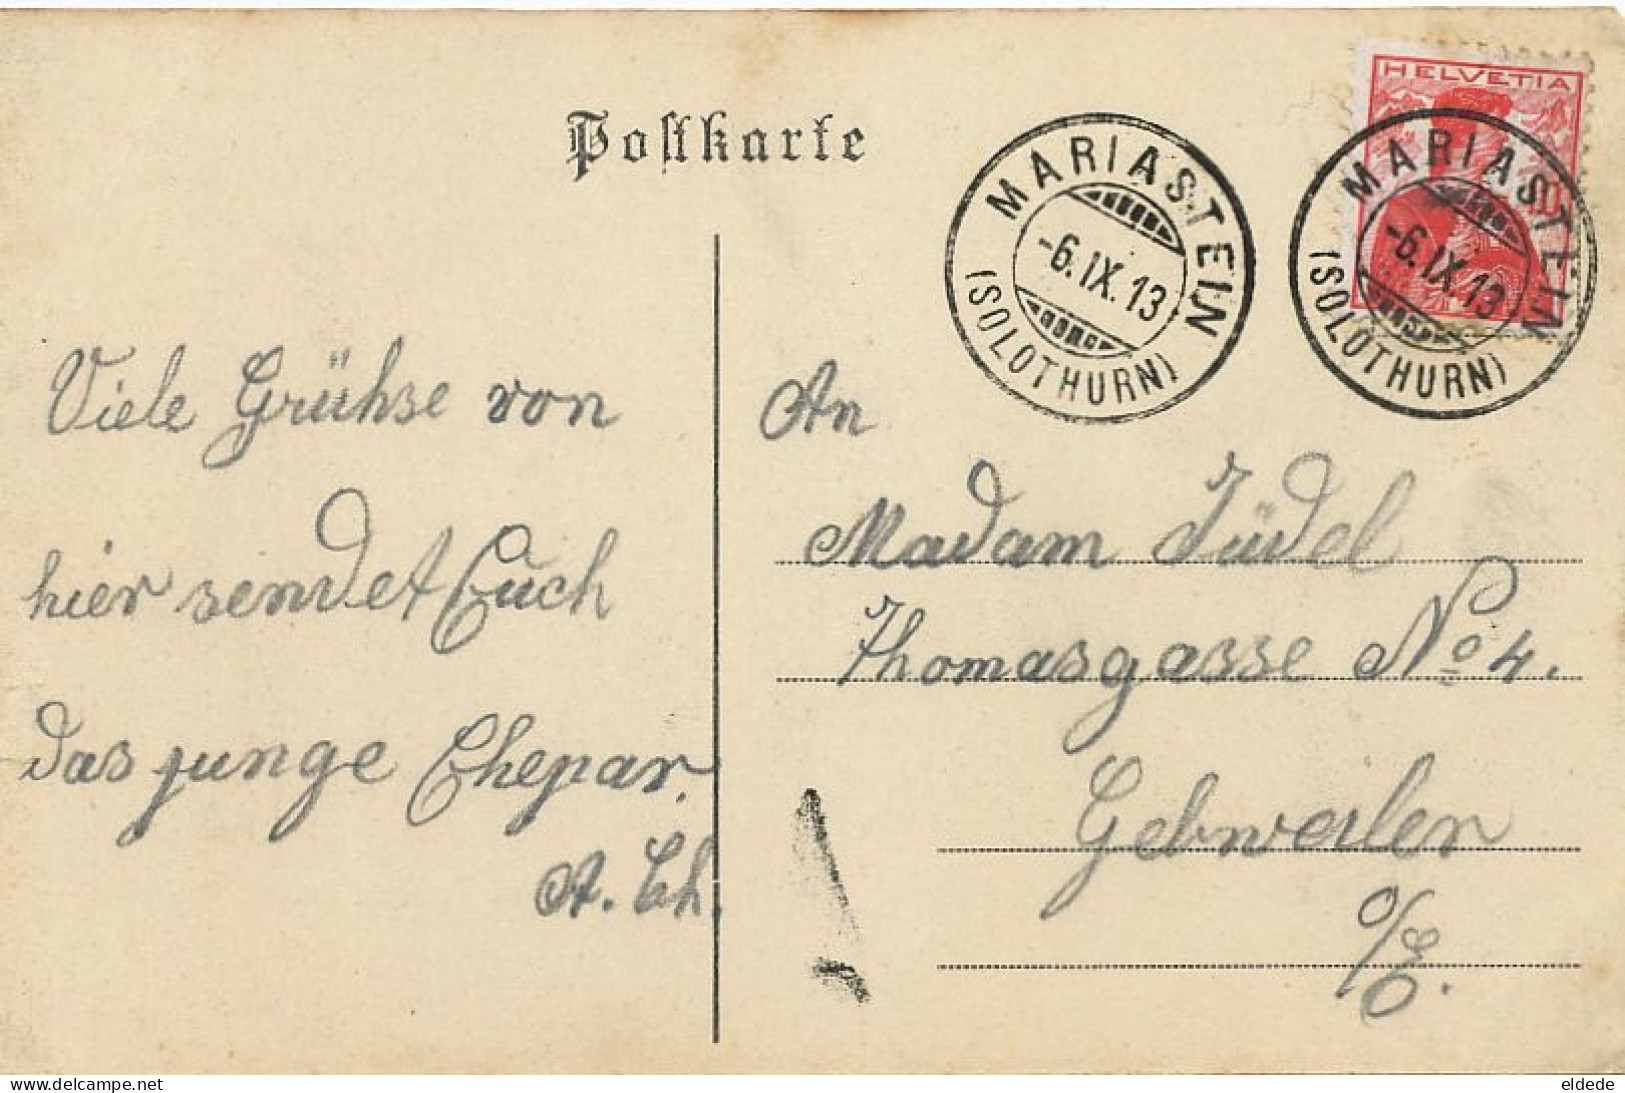 Postkarte
HELVETIA
10
MARIASTEIN
-6.IX.13
(SOLOTHURN)
MARIASTEIN
-6.IX.13
(SOLOTHURN)
Viele Grühse von
hier sendet Euch
das junge Ehepar.
A. Sch.
An
Madam Jüdel
Thomasgasse No 4.
Gebweiler
O/E.
www.delcampe.net
eldede